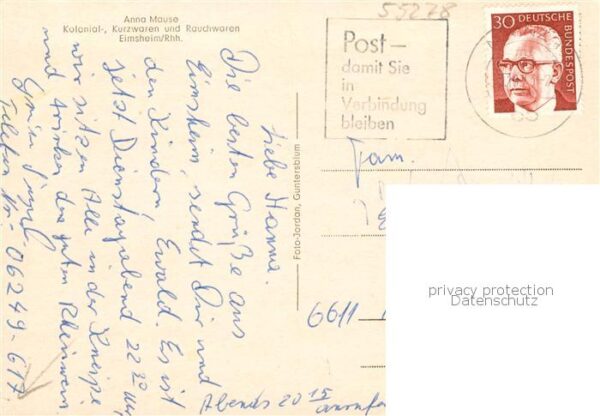 55278
Anna Mause
Kolonial-, Kurzwaren und Rauchwaren
Eimsheim/Rhh.
Liebe Hanna.
Die besten Grüße aus
Eimsheim, sendet Dir und
den Kindern, Ewald. Es ist
jetzt Dienstagabend 22 30 Uhr,
wir sitzen Alle in der Kneipe
und trinken den guten Rheinwein
Telefon Nr. 06249-617.
Foto-Jordan, Guntersblum
Post –
damit Sie
in
Verbindung
bleiben
30 DEUTSCHE
BUNDESPOST
Fam.
6611
Abends 20 15
privacy protection
Datenschutz